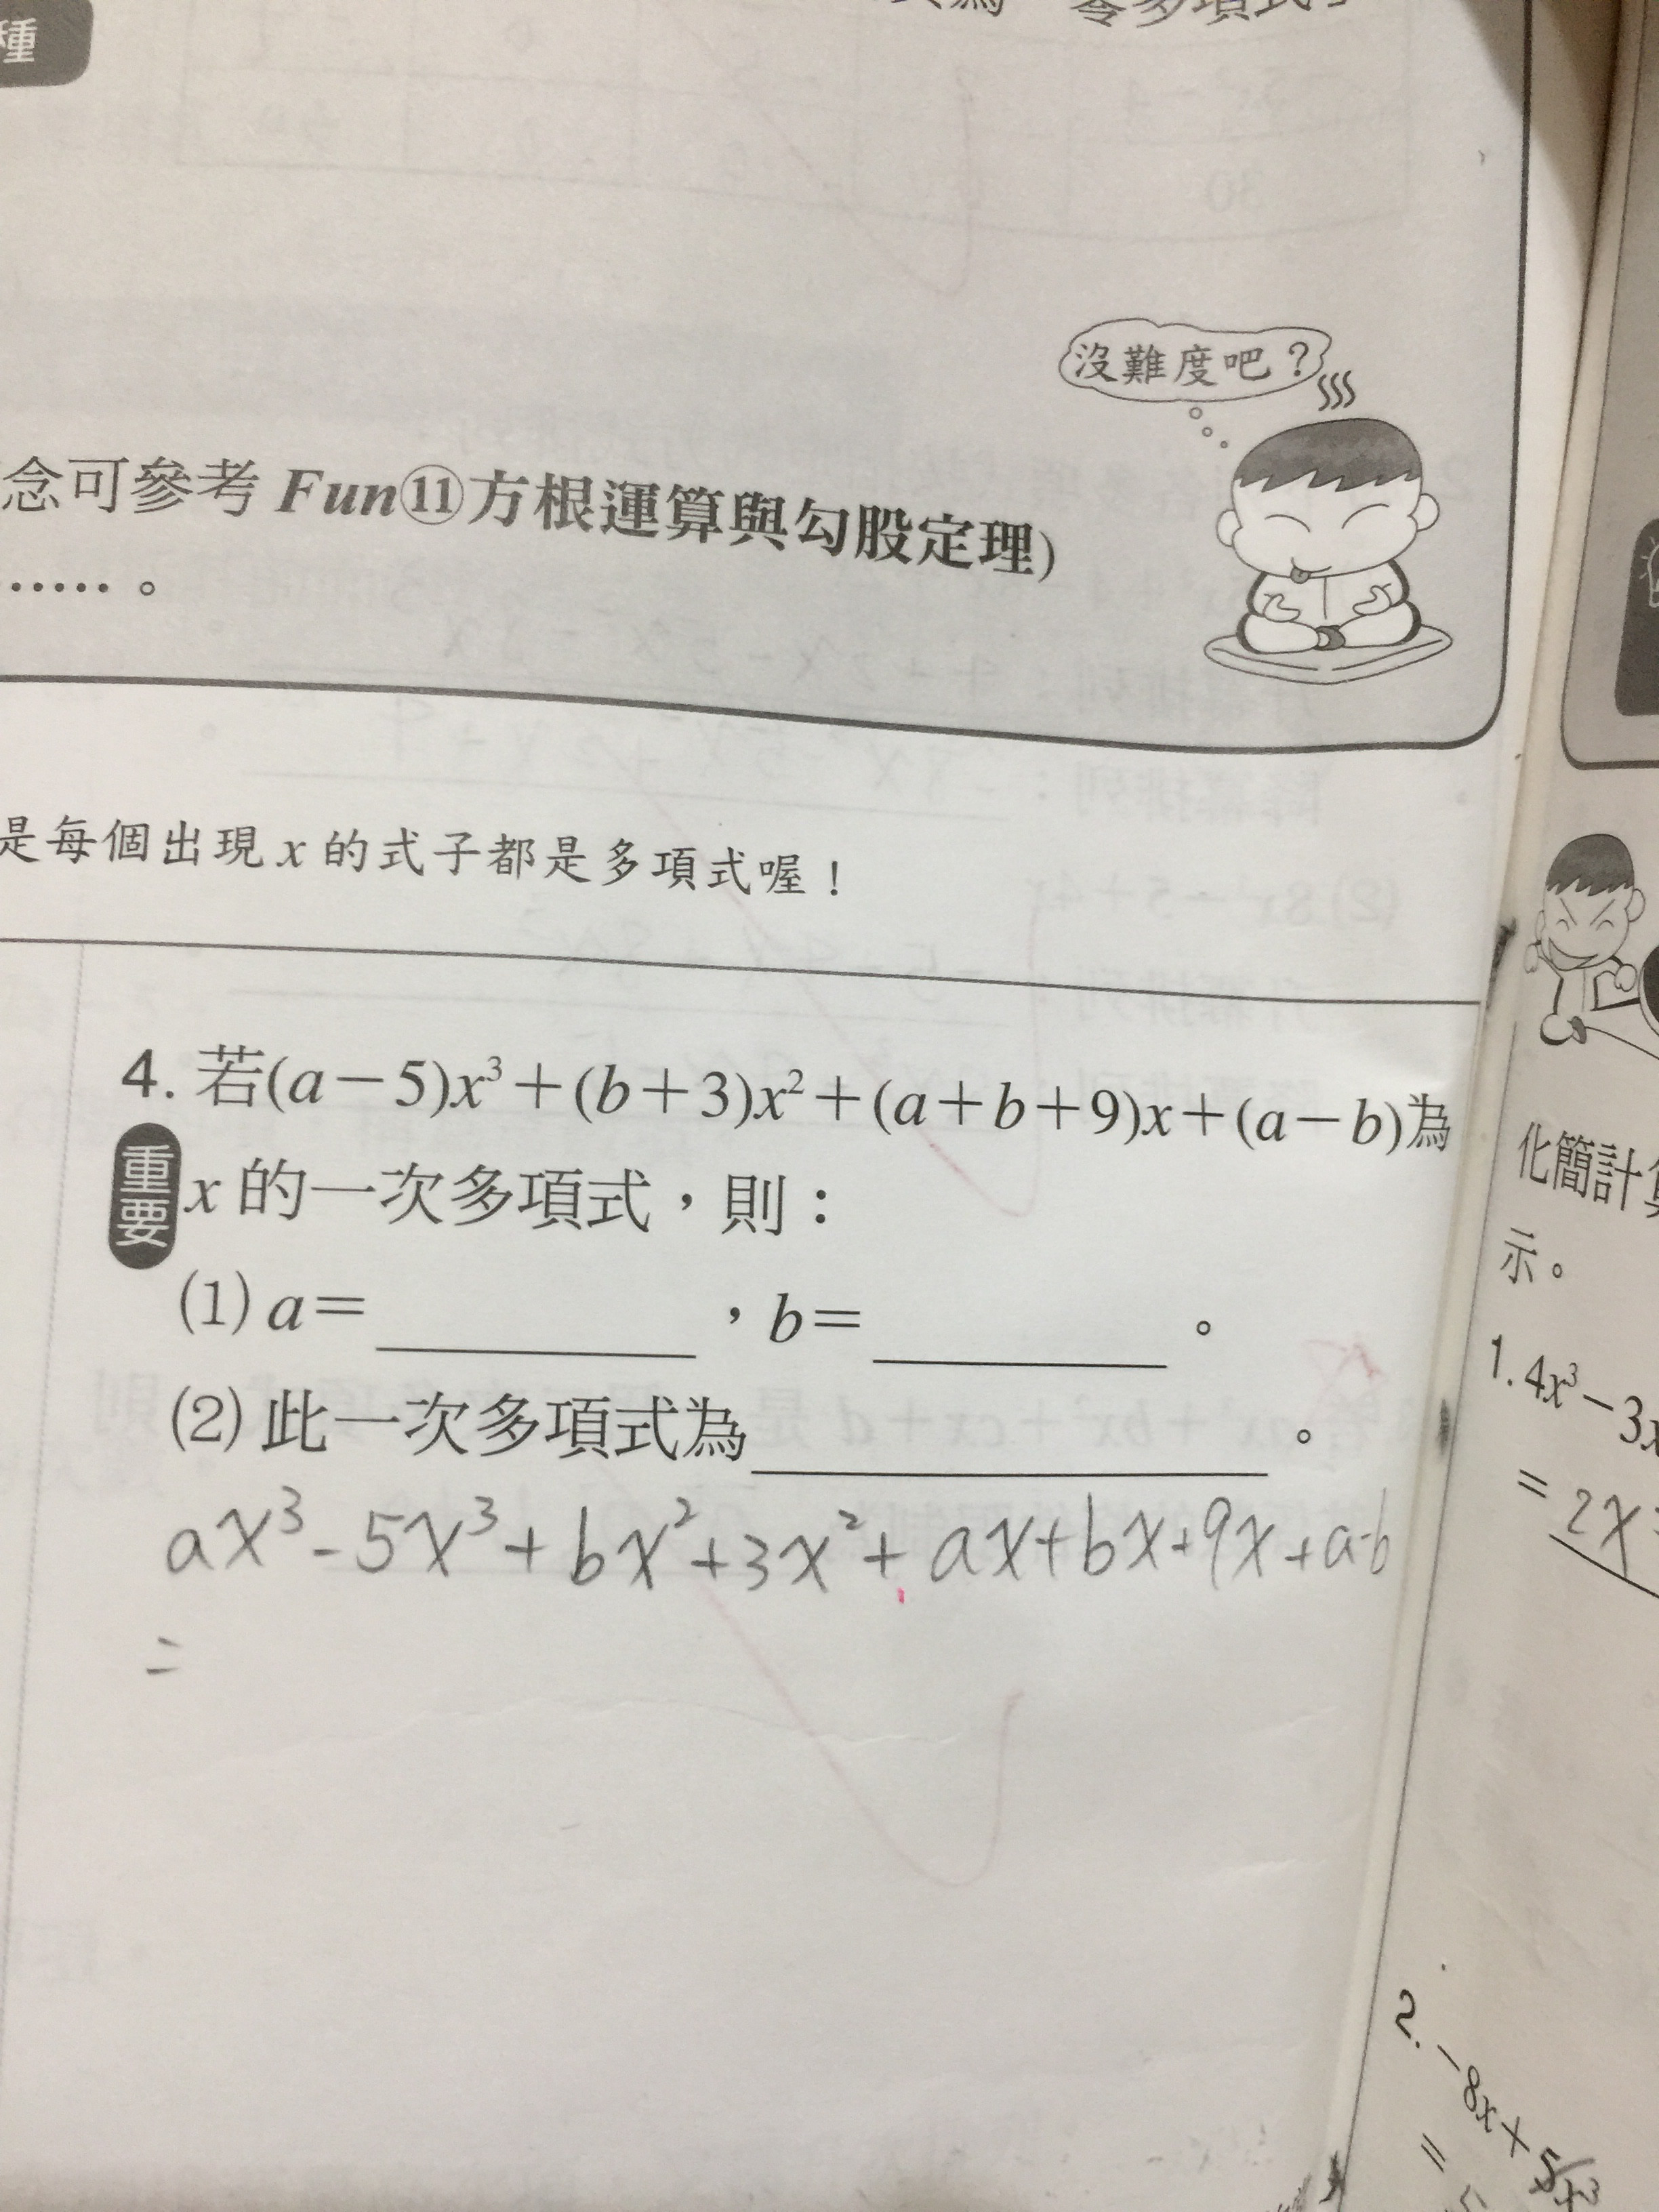 種
零多項式
沒難度吧？
念可參考 Fun⑪方根運算與勾股定理)
……。
是每個出現 x 的式子都是多項式喔！
4. 若(a－5)x³＋(b＋3)x²＋(a＋b＋9)x＋(a－b)為
重要
x 的一次多項式，則：
(1) a＝______，b＝______。
(2) 此一次多項式為______。
ax³-5x³+bx²+3x²+ax+bx+9x+a-b
=
化簡計
示。
1. 4x³－3x
= 2x
2. －8x＋5x³
=